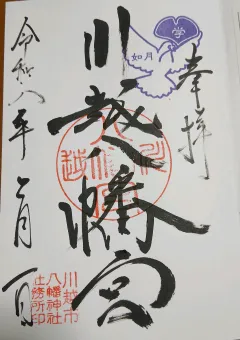 奉拝
学
如月
川越八幡宮
令和八年二月一日
川越市
八幡神社
社務所印